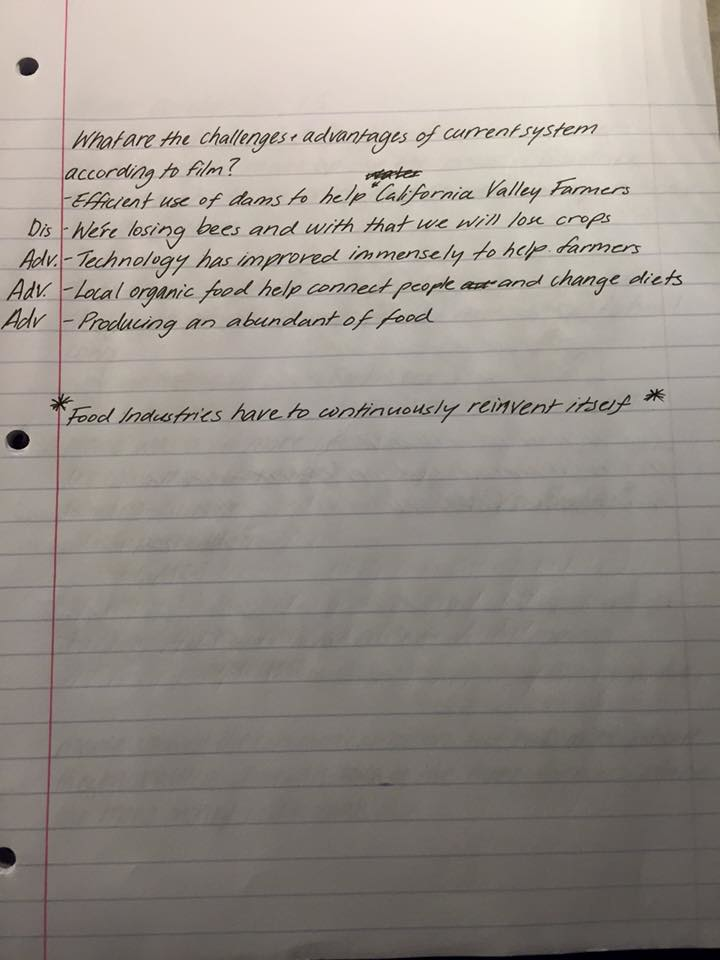 What are the challenges + advantages of current system
according to film?
- Efficient use of dams to help California Valley Farmers
Dis - We're losing bees and with that we will lose crops
Adv. - Technology has improved immensely to help farmers
Adv. - Local organic food help connect people and change diets
Adv - Producing an abundant of food
* Food Industries have to continuously reinvent itself *